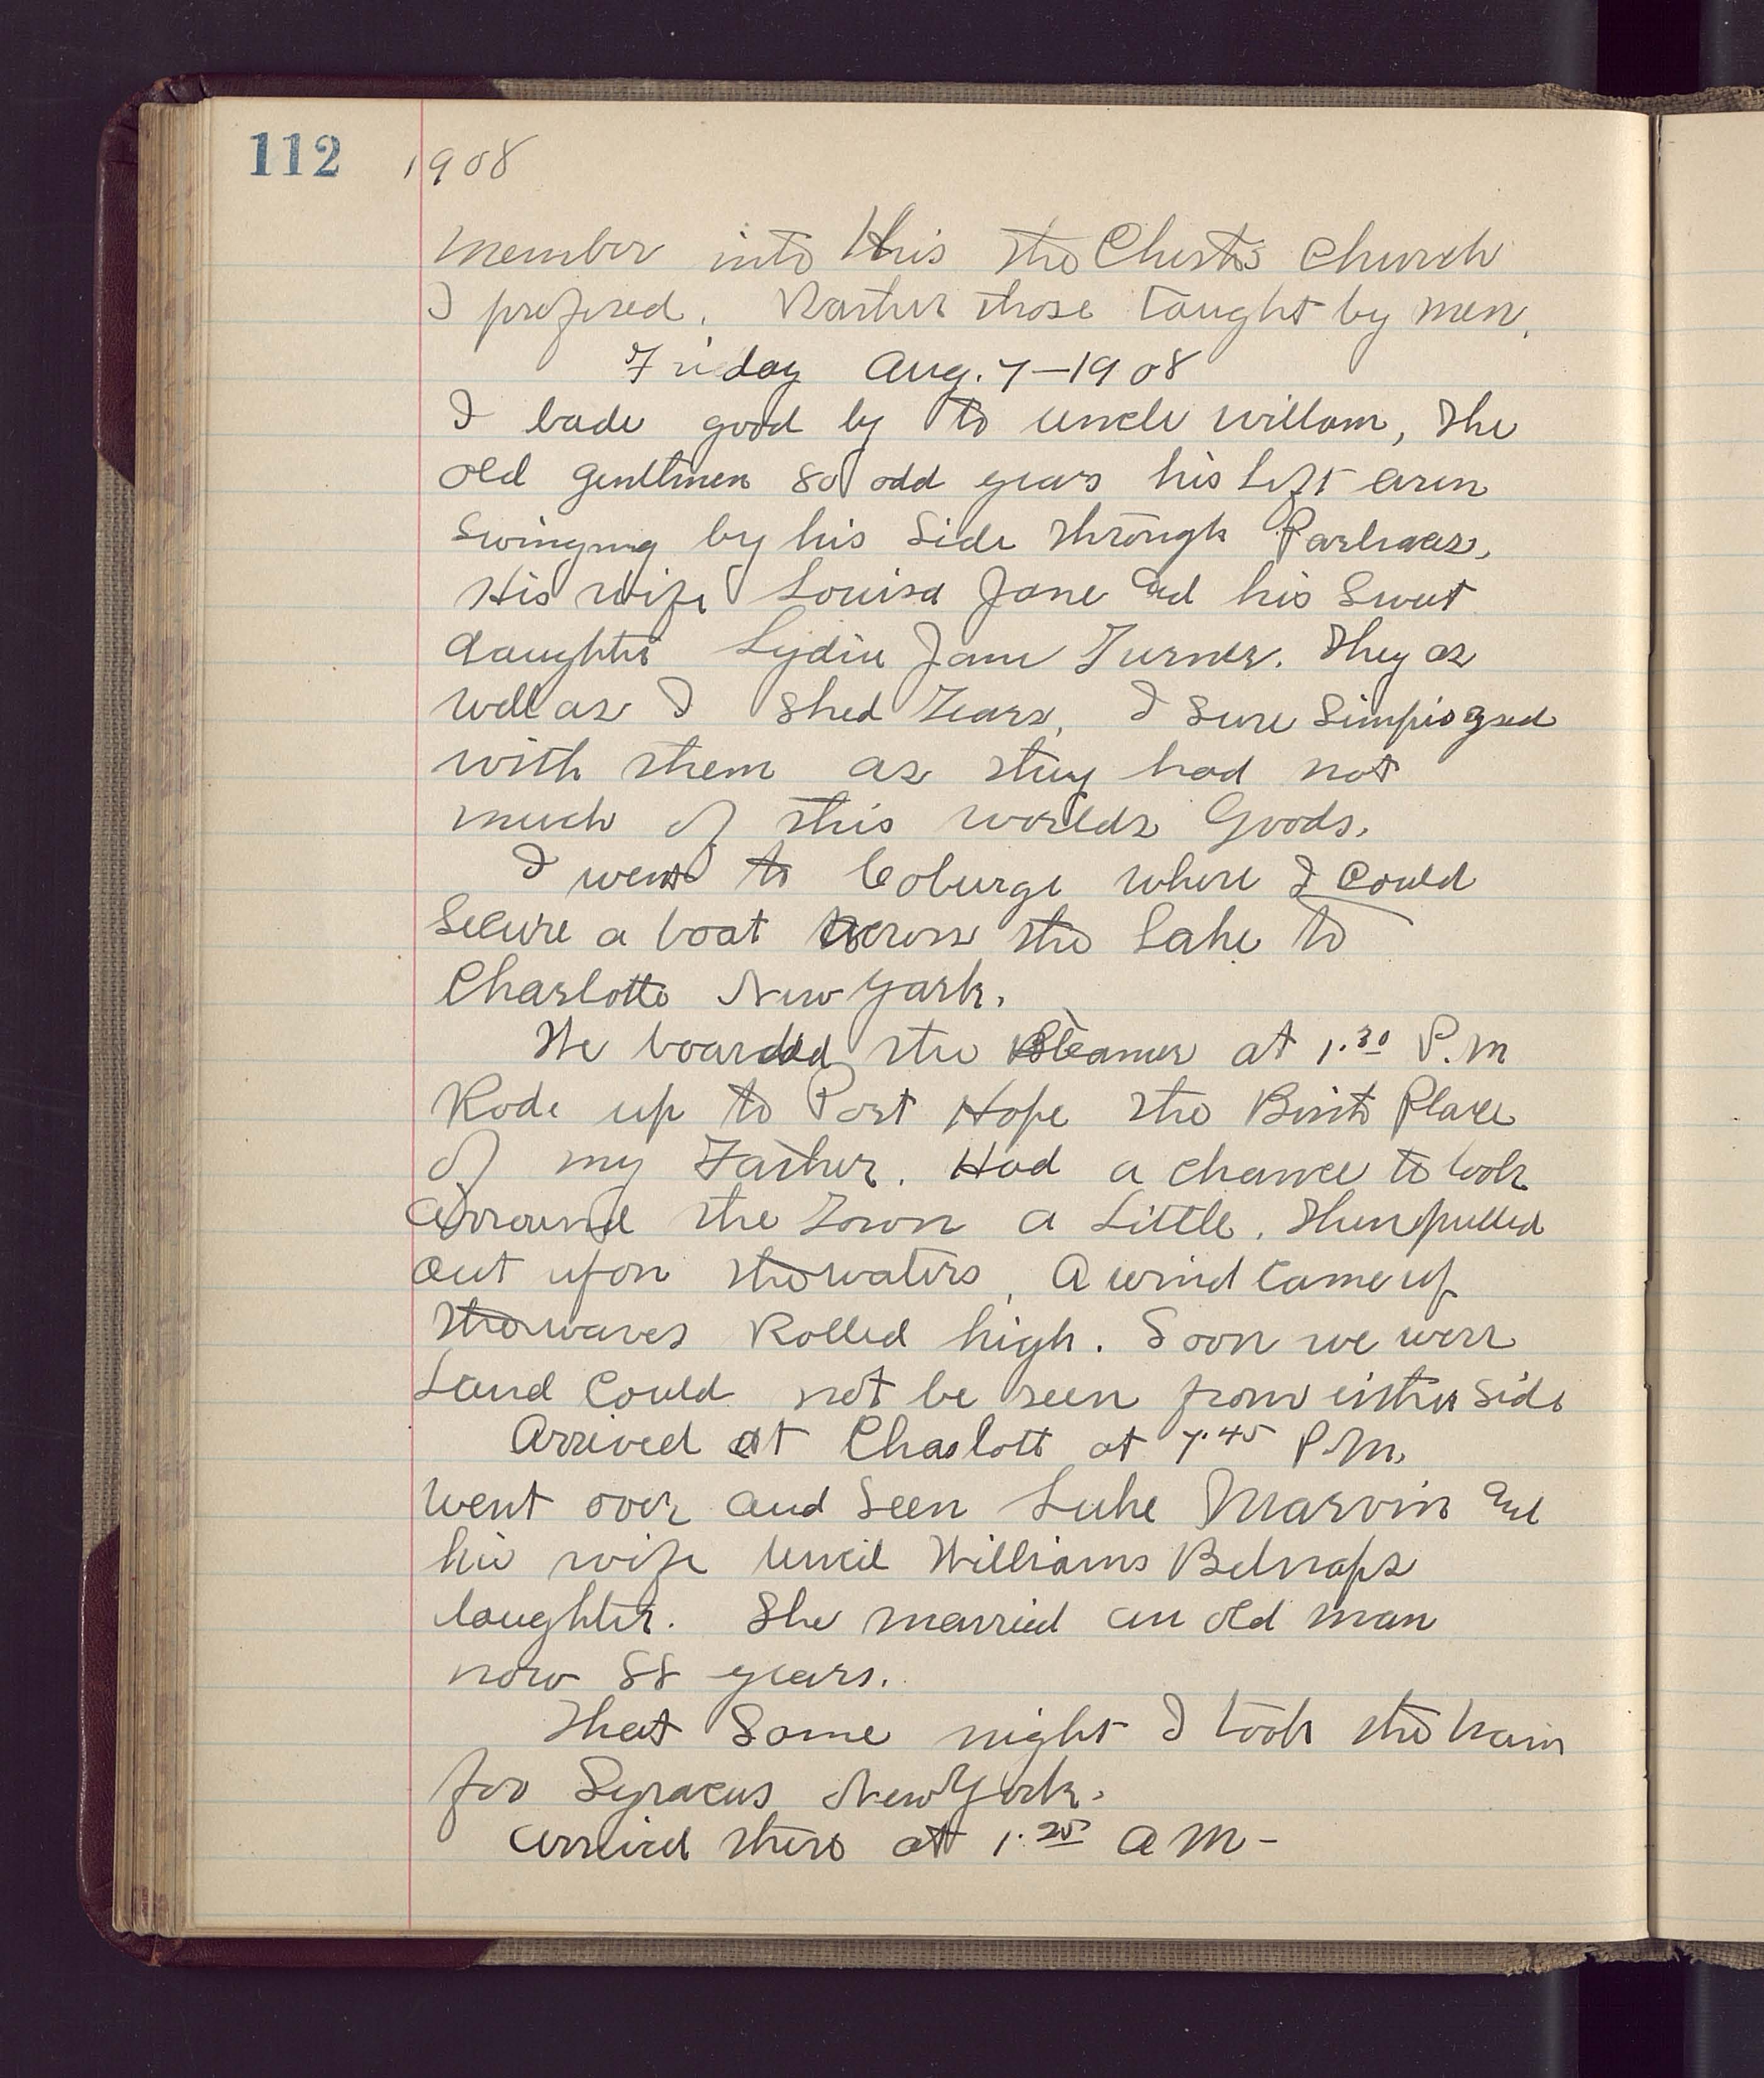 112 1908
member into this the Chists Church
I prefired. Rather those taught by men.
Friday Aug. 7-1908
I bade good by to uncle Willam, The
old gentlmen 80 odd years his Left arm
swinging by his side through
His wife Louisa Jane and his Sweet
daughter Lydia Jane Turner. They as
well as I shed Tears, I sure
with them as they had not
much of this worlds Goods.
I went to Coburge where I could
secure a boat across the Lake to
Charlotte New York.
We boarded the Steamer at 1.30 P.m
Rode up to Port Hope the Birth Place
of my Father. Had a chance to look
arround the Town a Little. Then pulled
out upon the waters, A wind came up
the waves Rolled high. Soon we were
Land could not be seen from either side
Arrived at Chaslott at 7.45 P.M.
Went over and Seen Luke Marvin and
his wife Uncil Williams Belnaps
daughter. She married an old man
now 88 years.
That Same night I took the train
for Syracus New York.
arrived there at 1.25 A M-